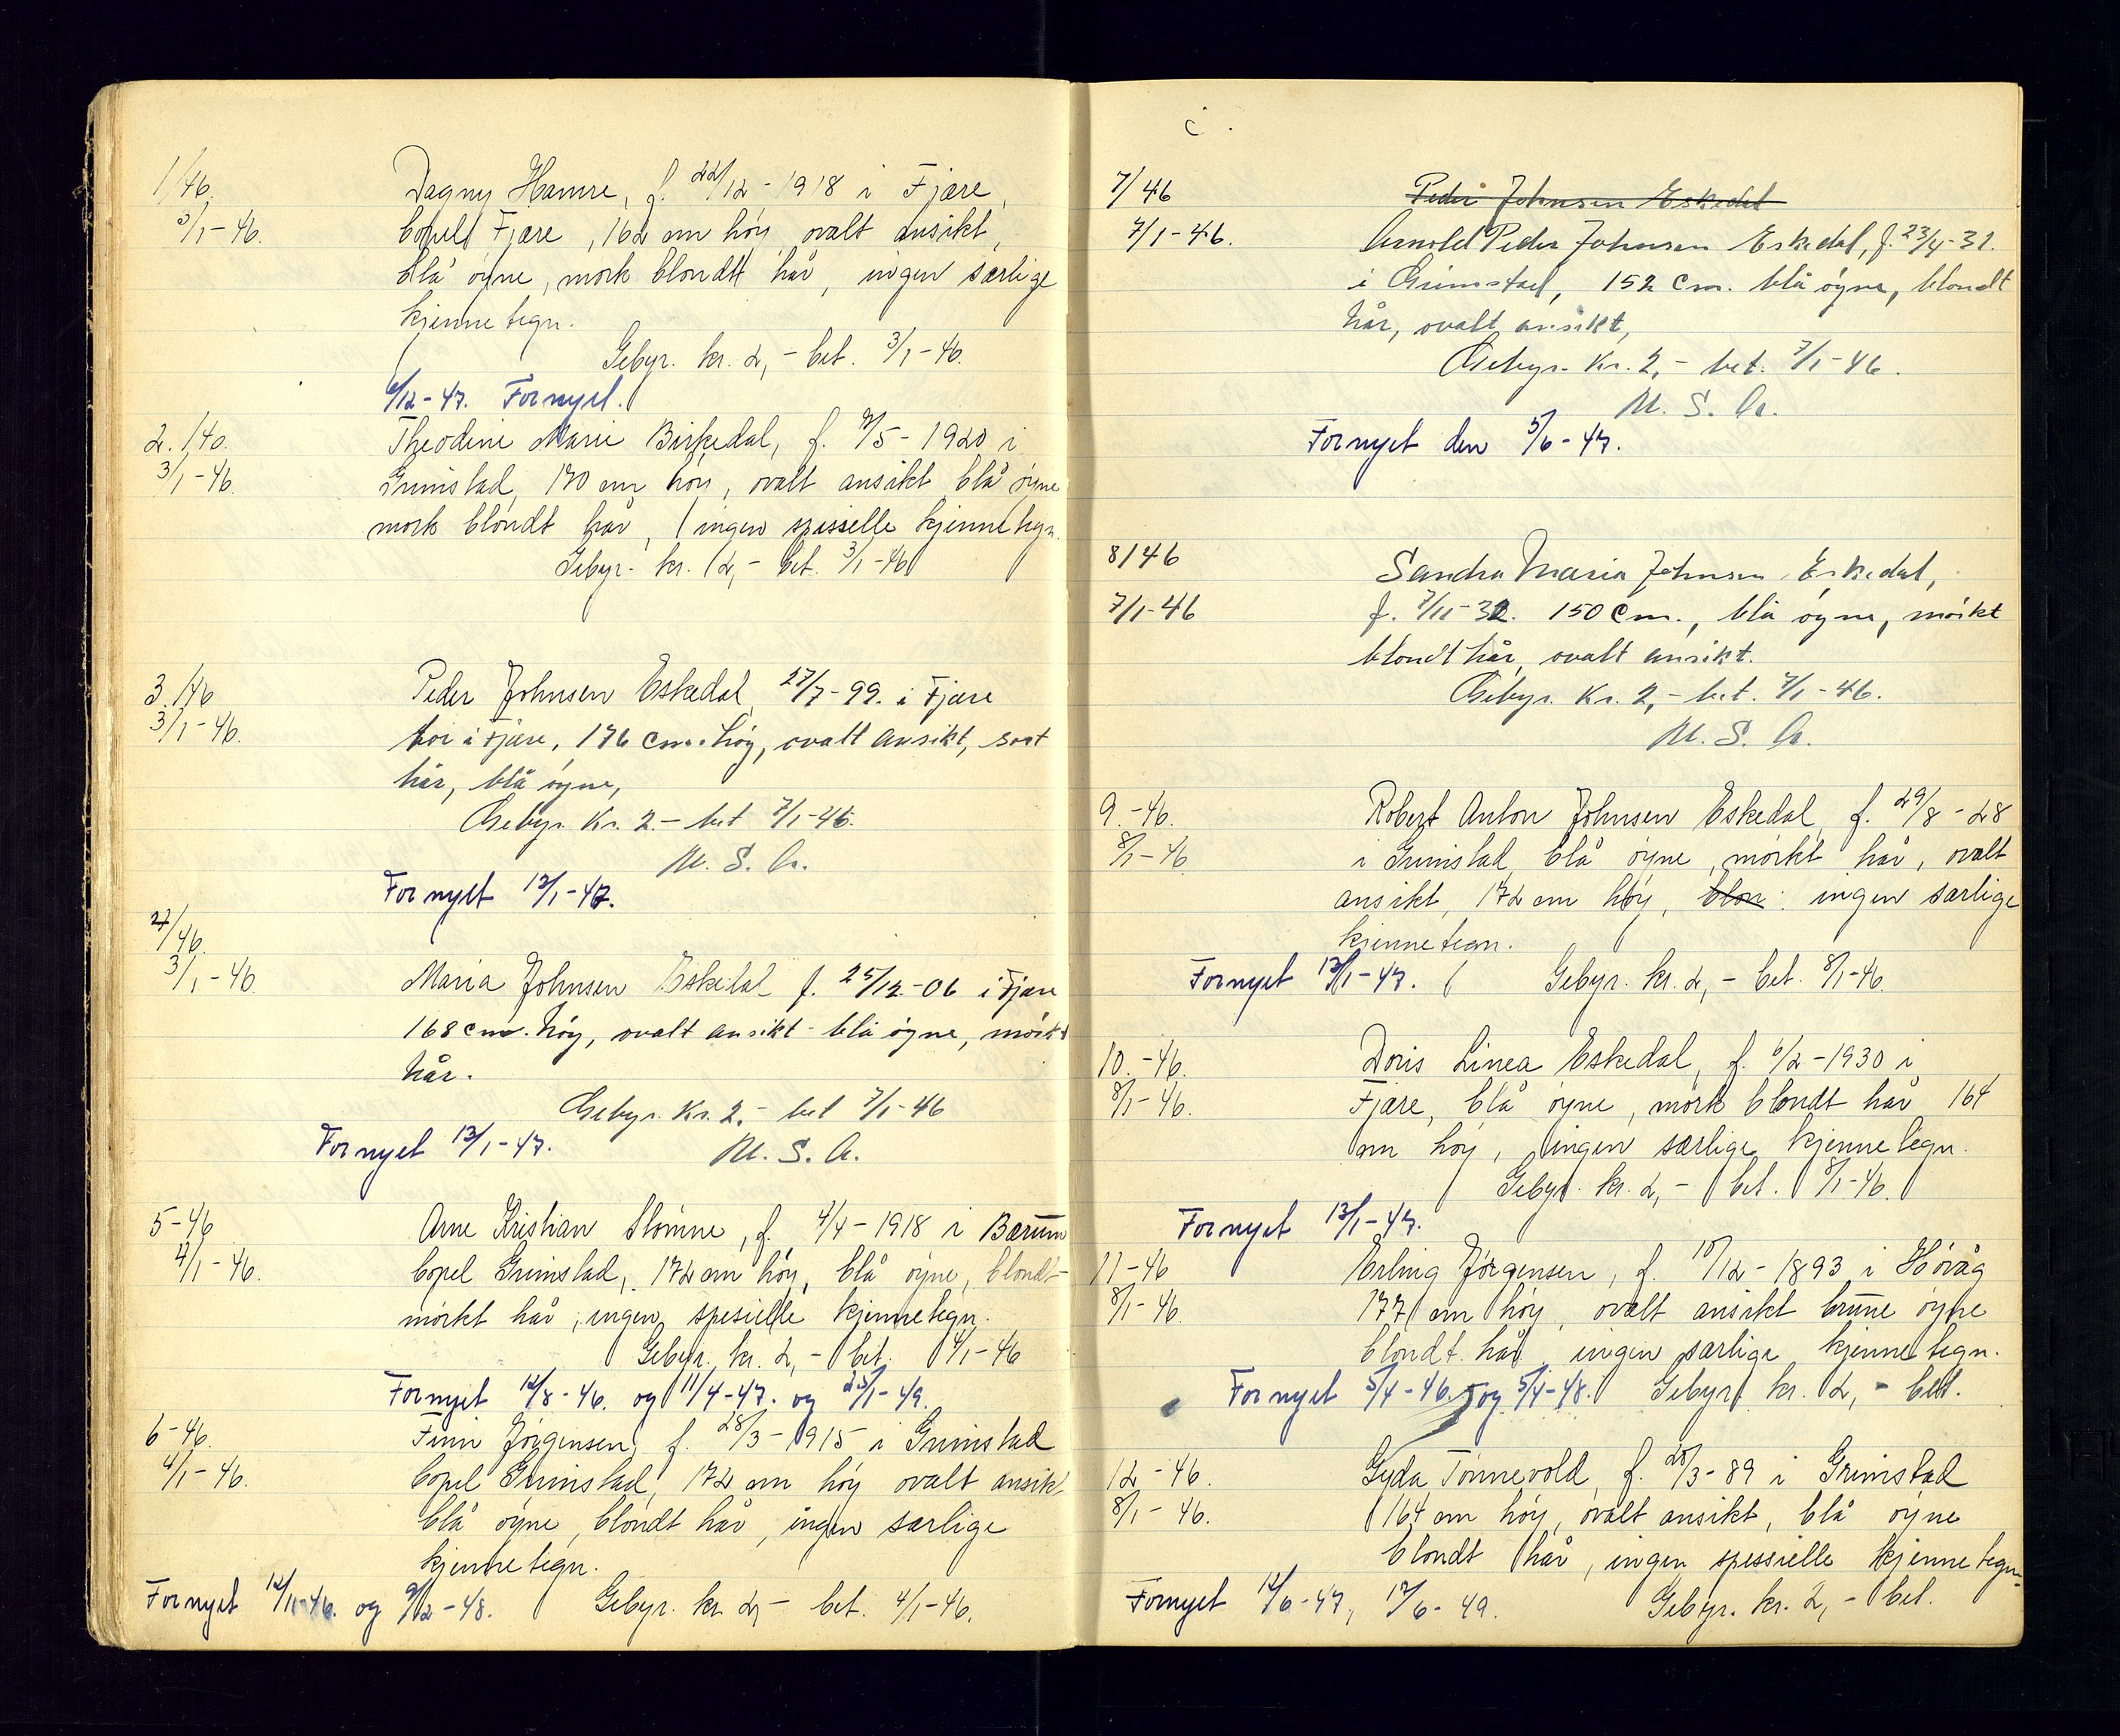 1/46.
3/1-46.
Dagny Hamre, f. 22/12-1918 i Fjære,
bopel Fjære, 162 cm høy ovalt ansikt,
blå øyne, mørk blondt hår, ingen særlige
kjennetegn.
Gebyr. kr. 2,- bet. 3/1-46.
6/12-47. Fornyet.
2./40.
3/1-46.
Theodine Marie Birkedal, f. 9/5-1920 i
Grimstad, 170 cm høy, ovalt ansikt blå øyne
mørk blondt hår, ingen spissielle kjennetegn.
Gebyr. kr. 2,- bet. 3/1-46
3./46
3/1-46.
Peder Johnsen Eskedal 27/7-99. i Fjære
bor i Fjære, 176 cm. høy, ovalt ansikt, sort
hår, blå øyne,
Gebyr. Kr. 2.- bet 7/1-46.
M. S. A.
Fornyet 13/1-47.
4/46.
3/1-46.
Maria Johnsen Eskedal f. 25/12-06 i Fjære
168 cm. høy, ovalt ansikt - blå øyne, mørkt
hår.
Gebyr. Kr. 2,- bet 7/1-46
Fornyet 13/1-47.
M. S. A.
5-46
4/1-46.
Arne Kristian Slømne, f. 4/4-1918 i Bærum
bopel Grimstad, 172 cm høy, blå øyne, blondt-
mørkt hår, ingen spesielle kjennetegn.
Gebyr. kr. 2,- bet. 4/1-46
Fornyet 12/8-46. og 11/4-47. og 25/1-49.
6-46.
4/1-46.
Finn Jørgensen, f. 28/3-1915 i Grimstad
bopel Grimstad, 172 cm høy ovalt ansikt
blå øyne, blondt hår, ingen særlige
kjennetegn.
Fornyet 12/11-46. og 9/12-48. Gebyr. kr 2,- bet. 4/1-46.
7/46
7/1-46.
Peder Johnsen Eskedal
Arnold Peder Johnsen Eskedal, f. 23/4-31.
i Grimstad, 152 cm. blå øyne, blondt
hår, ovalt ansikt,
Gebyr. Kr. 2,- bet. 7/1-46.
M. S. A.
Fornyet den 5/6-47.
8/46
7/1-46
Sandra Maria Johnsen Eskedal,
f. 7/11-32. 150 cm., blå øyne, mørkt
blondt hår, ovalt ansikt.
Gebyr. Kr. 2,- bet. 7/1-46.
M. S. A.
9.-46.
8/1-46
Robert Anton Johnsen Eskedal f. 29/8-28
i Grimstad blå øyne, mørkt hår, ovalt
ansikt, 172 cm høy, blon ingen særlige
kjennetegn.
Fornyet 13/1-47. Gebyr. kr. 2,- bet. 8/1-46.
10.-46.
8/1-46.
Doris Linea Eskedal, f. 6/2-1930 i
Fjære, blå øyne, mørk blondt hår 164
cm høy, ingen særlige kjennetegn.
Gebyr. kr. 2,- bet. 8/1-46.
Fornyet 13/1-47.
11-46
8/1-46.
Erling Jørgensen, f. 10/12-1893 i Høvåg
177 cm høy, ovalt ansikt brune øyne
blondt hår ingen særlige kjennetegn.
Fornyet 5/4-46. og 5/4-48. Gebyr. kr. 2,- bet.
12-46.
8/1-46.
Gyda Tønnevold, f. 28/3-89 i Grimstad
164 cm høy, ovalt ansikt, blå øyne
blondt hår, ingen spessielle kjennetegn.
Fornyet 12/6-47, 17/6-49. Gebyr. kr. 2,- bet.